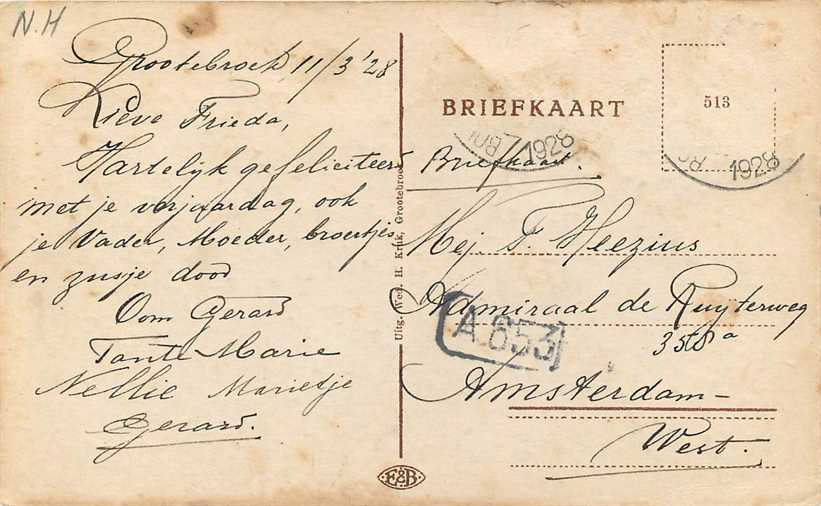 N.H
Grootebroek 11/3 '28
Lieve Frieda,
Hartelijk gefeliciteerd
met je verjaardag, ook
je Vader, Moeder, broertjes,
en zusje door
Oom Gerard
Tante Marie
Nellie Marietje
Gerard.
Uitg. Wed. H. Kruk, Grootebroek
E&B
BRIEFKAART
513
1928
1928
Briefkaart.
Mej F. Heezius
Admiraal de Ruyterweg
358a
A.653
Amsterdam-
West.